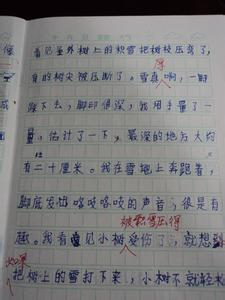 看见屋外树上的积雪把树枝压弯了,
有的树尖被压断了。雪真厚啊,一脚
踩下去,脚印很深,我用手量了一
量,估计了一下,最深的地方大约
有二十厘米。我在雪地上奔跑着,
脚底发出咯吱咯吱的声音,很是有
趣。我看见小树被积雪压得受伤了,就想到
把树上的雪打下来,小树不就轻松